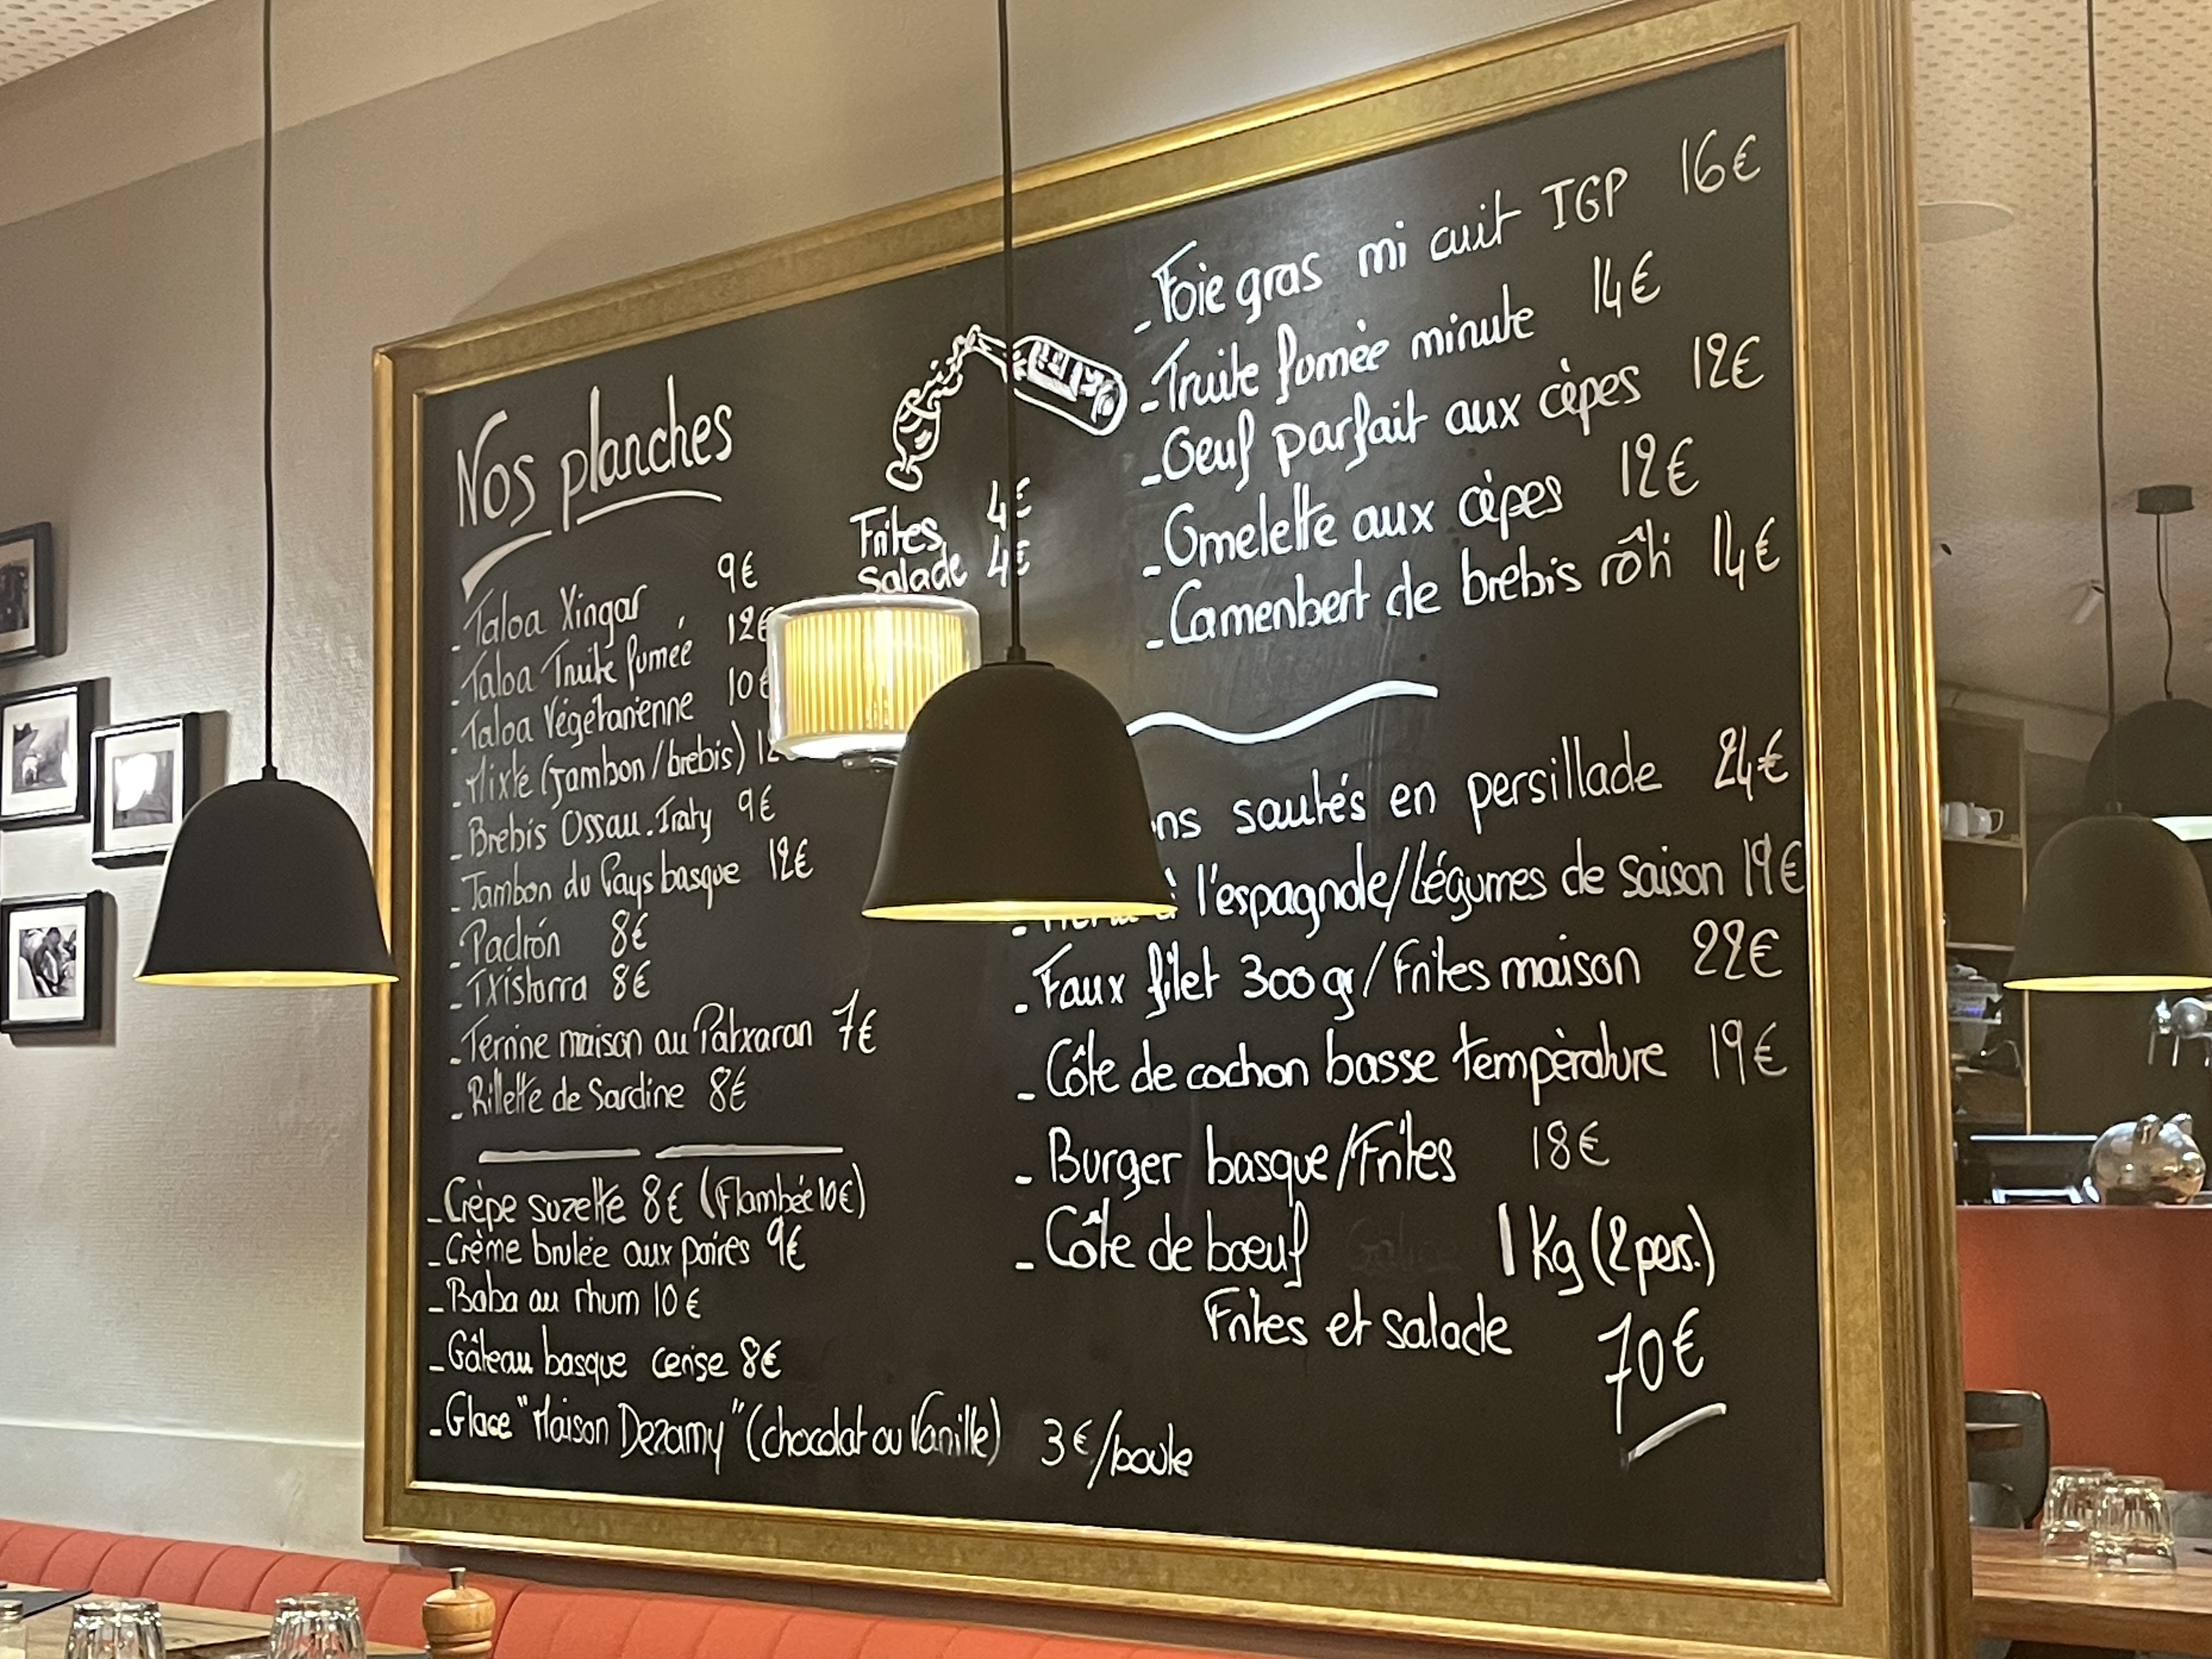 Nos planches
- Taloa Xingar 9€
- Taloa Truite fumée 12€
- Taloa Végétarienne 10€
- Mixte (Jambon/brebis)
- Brebis Ossau.Iraty 9€
- Jambon du Pays basque 12€
- Padrón 8€
- Txistorra 8€
- Terrine maison au Patxaran 7€
- Rillette de Sardine 8€
- Crèpe suzette 8€ (Flambée 10€)
- Crème brulée aux poires 9€
- Baba au rhum 10€
- Gâteau basque cerise 8€
- Glace "Maison Dezamy" (chocolat ou Vanille) 3€/boule
Frites 4€
Salade 4€
- Foie gras mi cuit IGP 16€
- Truite fumèe minute 14€
- Oeuf parfait aux cèpes 12€
- Omelette aux cèpes 12€
- Camenbert de brebis rôti 14€
sautés en persillade 24€
à l'espagnole/Légumes de saison 19€
- Faux filet 300gr/Frites maison 22€
- Côte de cochon basse tempèrature 19€
- Burger basque/Frites 18€
- Côte de bœuf 1Kg (2pers.)
Frites et salade 70€